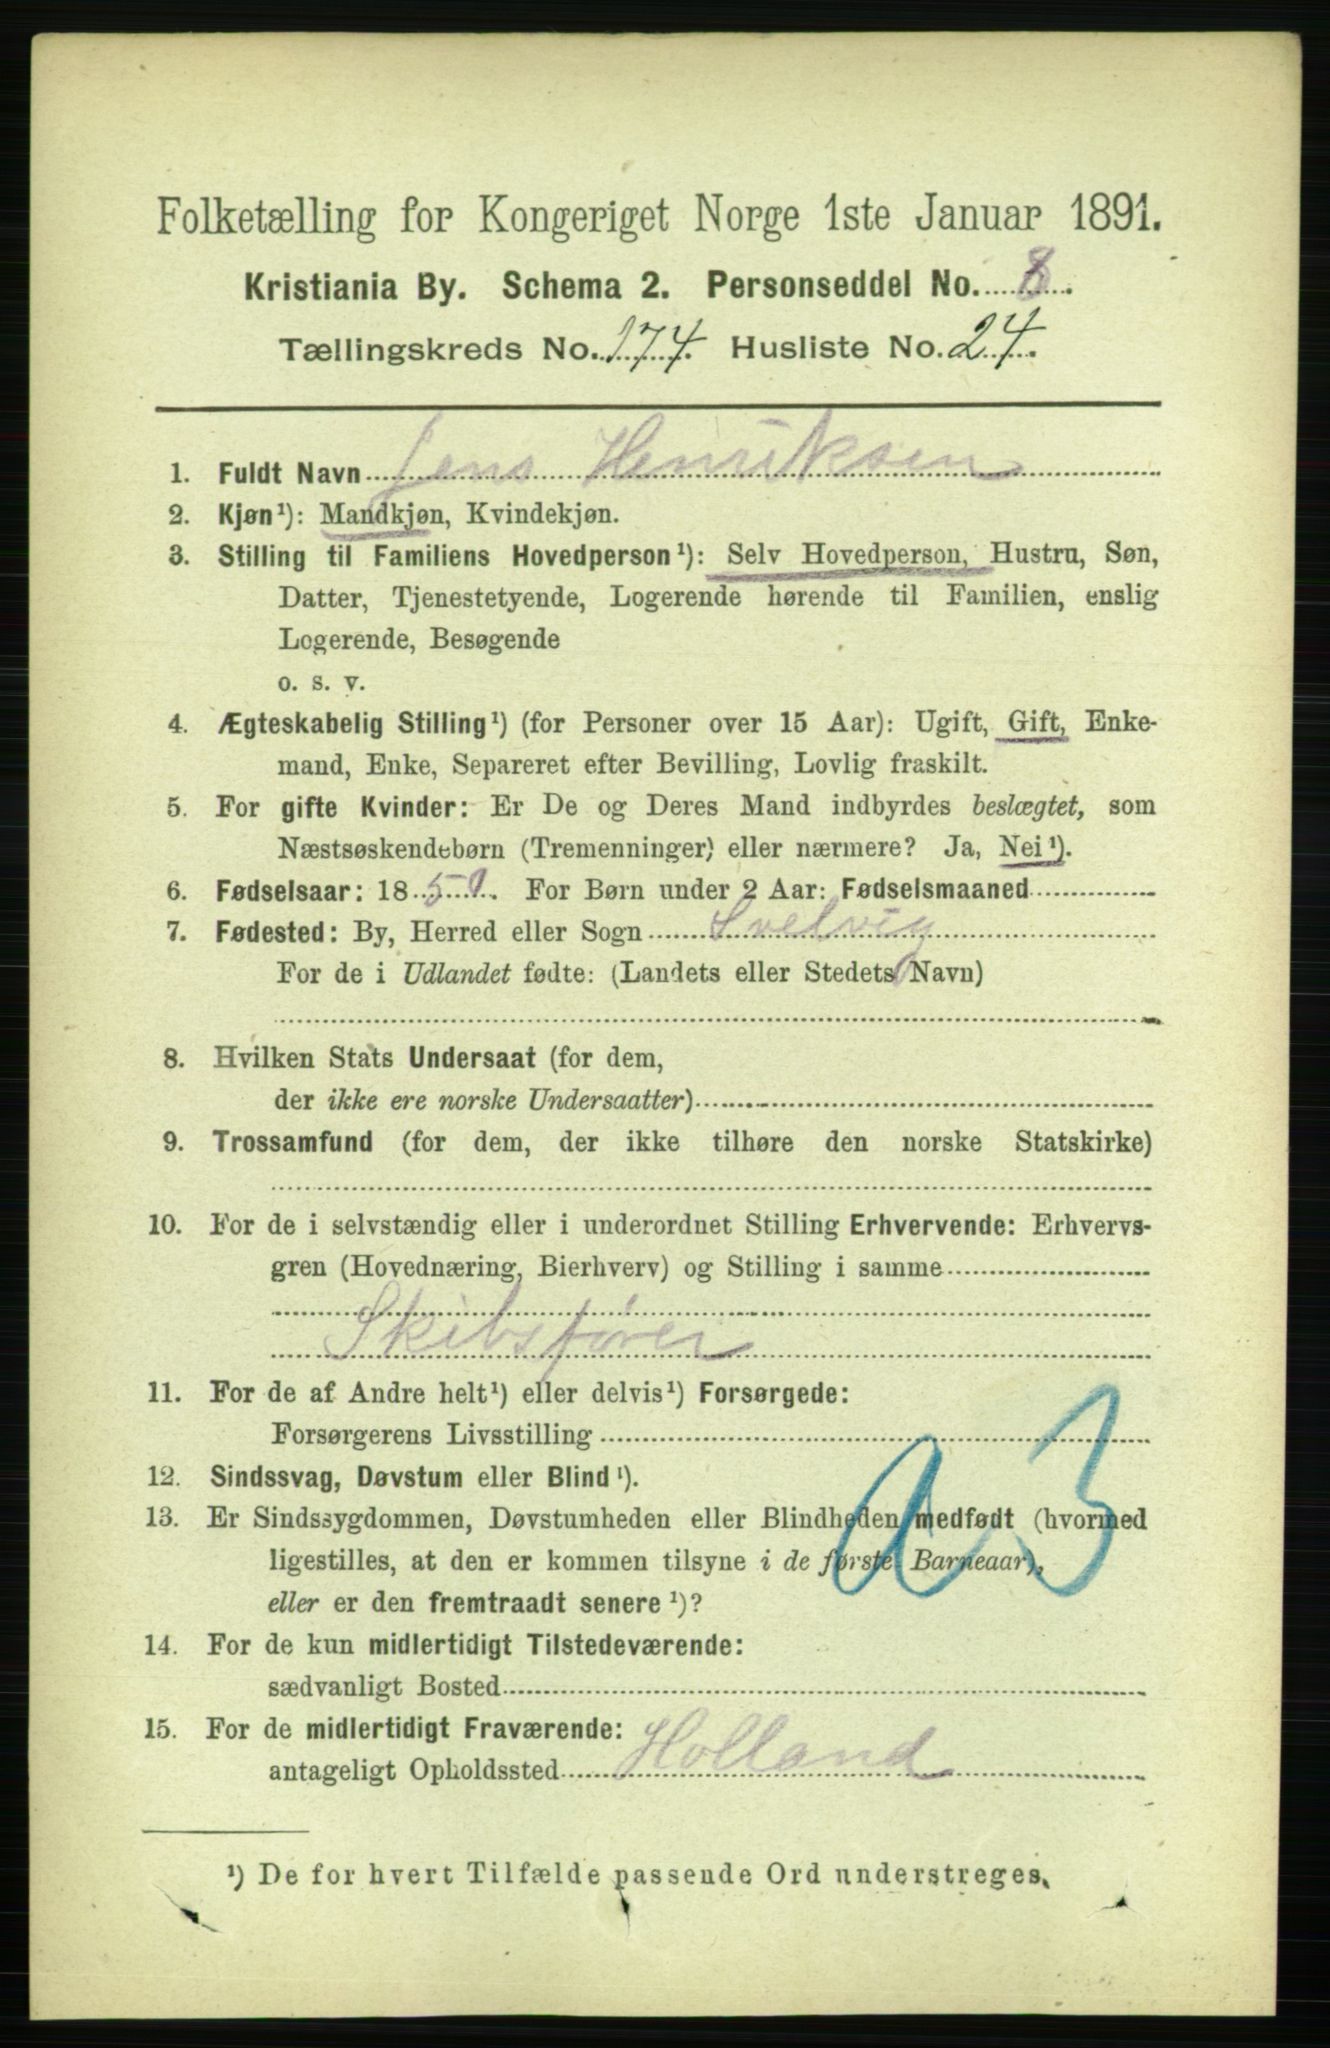 Folketælling for Kongeriget Norge 1ste Januar 1891.
Kristiania By. Schema 2. Personseddel No. 8.
Tællingskreds No. 174. Husliste No. 24.
1. Fuldt Navn Jens Henriksen
2. Kjøn¹): Mandkjøn, Kvindekjøn.
3. Stilling til Familiens Hovedperson¹): Selv Hovedperson, Hustru, Søn,
Datter, Tjenestetyende, Logerende hørende til Familien, enslig
Logerende, Besøgende
o. s. v.
4. Ægteskabelig Stilling¹) (for Personer over 15 Aar): Ugift, Gift, Enke-
mand, Enke, Separeret efter Bevilling, Lovlig fraskilt.
5. For gifte Kvinder: Er De og Deres Mand indbyrdes beslægtet, som
Næstsøskendebørn (Tremenninger) eller nærmere? Ja, Nei¹).
6. Fødselsaar: 1851. For Børn under 2 Aar: Fødselsmaaned
7. Fødested: By, Herred eller Sogn Svelvig
For de i Udlandet fødte: (Landets eller Stedets Navn)
8. Hvilken Stats Undersaat (for dem,
der ikke ere norske Undersaatter)
9. Trossamfund (for dem, der ikke tilhøre den norske Statskirke)
10. For de i selvstændig eller i underordnet Stilling Erhvervende: Erhvervs-
gren (Hovednæring, Bierhverv) og Stilling i samme
Skibsfører
11. For de af Andre helt¹) eller delvis¹) Forsørgede:
Forsørgerens Livsstilling
12. Sindssvag, Døvstum eller Blind¹).
13. Er Sindssygdommen, Døvstumheden eller Blindheden medfødt (hvormed
ligestilles, at den er kommen tilsyne i de første Barneaar),
eller er den fremtraadt senere¹)?
a 3
14. For de kun midlertidigt Tilstedeværende:
sædvanligt Bosted
15. For de midlertidigt Fraværende:
antageligt Opholdssted Holland
¹) De for hvert Tilfælde passende Ord understreges.